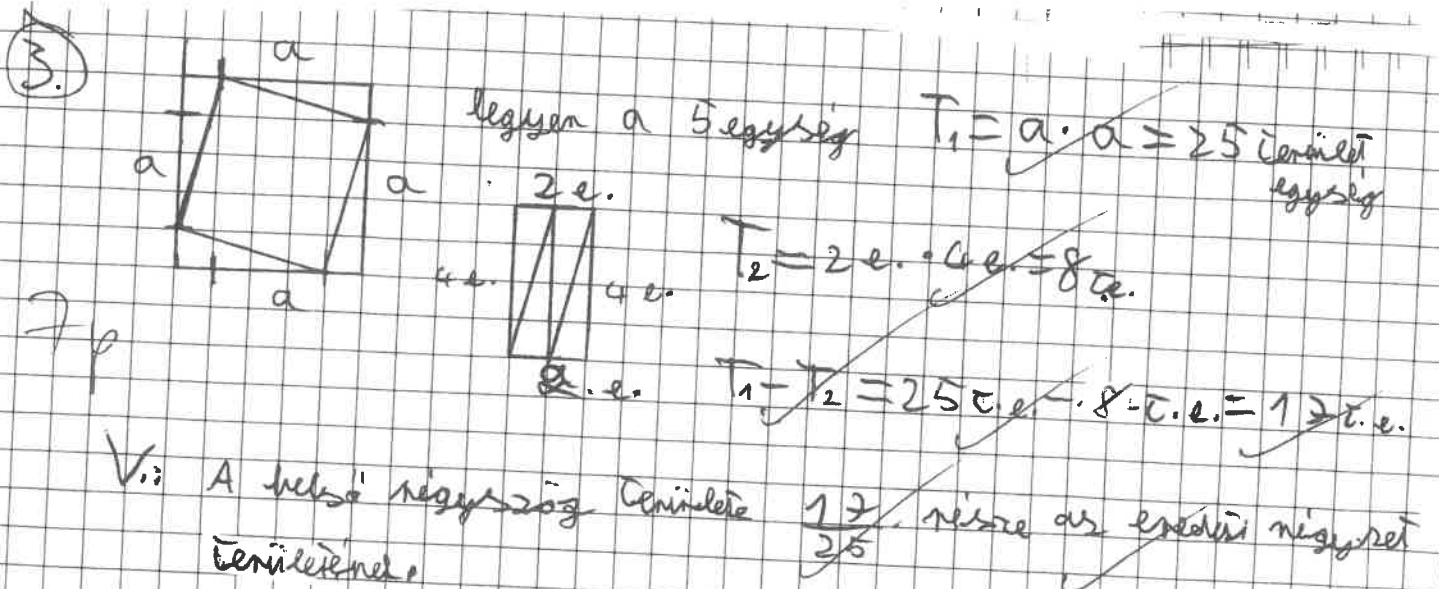 3.
a
a
a
a
legyen a 5 egység
T₁ = a · a = 25 terület
egység
2 e.
4 e.
4 e.
2 e.
T₂ = 2 e. · 4 e. = 8 t.e.
7p
T₁ - T₂ = 25 t.e. - 8 t.e. = 17 t.e.
V.: A belső négyszög területe 17/25 része az eredeti négyzet
területének.